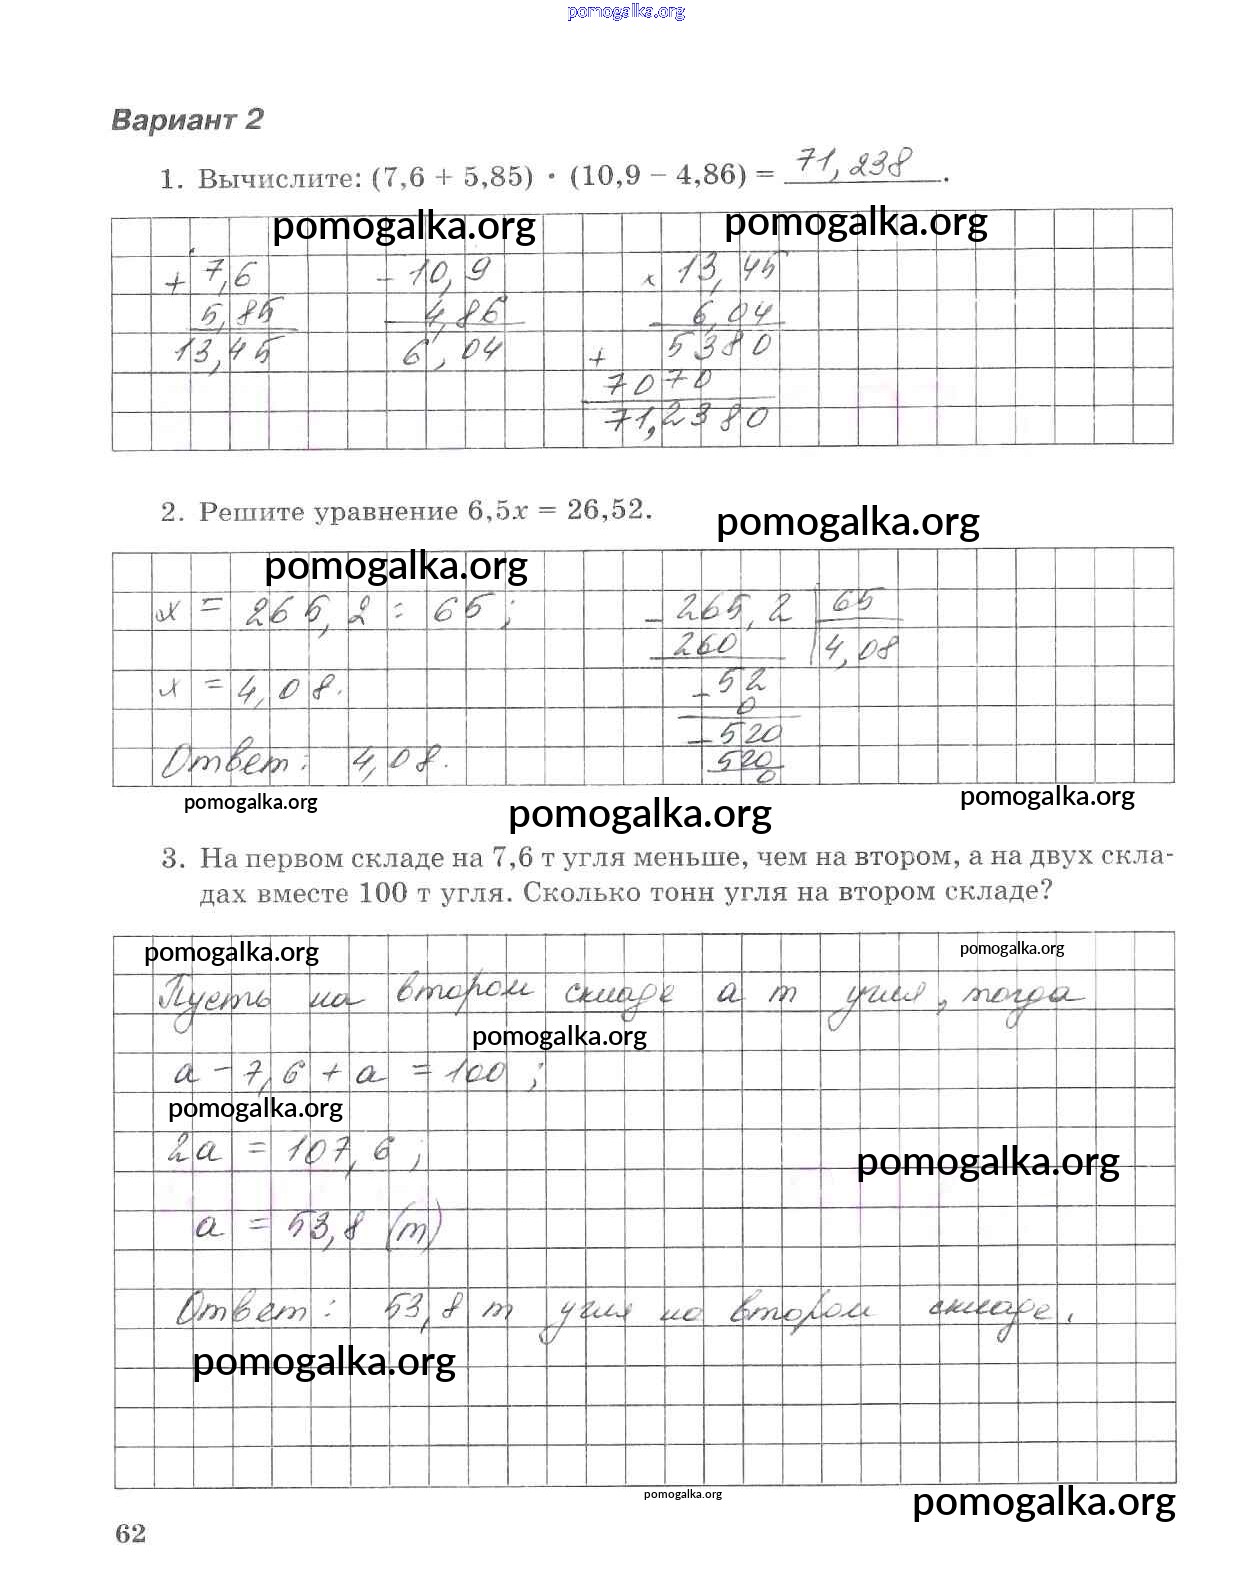 pomogalka.org
Вариант 2
1. Вычислите: (7,6 + 5,85) · (10,9 – 4,86) = 71,238.
pomogalka.org pomogalka.org
+ 7,6 – 10,9 × 13,45
5,85 4,86 6,04
13,45 6,04 + 5380
7070
71,2380
2. Решите уравнение 6,5x = 26,52.
pomogalka.org
pomogalka.org
x = 265,2 : 65; – 265,2 | 65
260 | 4,08
x = 4,08. – 52
0
– 520
Ответ: 4,08. 520
0
pomogalka.org pomogalka.org pomogalka.org
3. На первом складе на 7,6 т угля меньше, чем на втором, а на двух скла-
дах вместе 100 т угля. Сколько тонн угля на втором складе?
pomogalka.org pomogalka.org
Пусть на втором складе a т угля, тогда
pomogalka.org
a – 7,6 + a = 100;
pomogalka.org
2a = 107,6;
pomogalka.org
a = 53,8 (т)
Ответ: 53,8 т угля на втором складе.
pomogalka.org
pomogalka.org pomogalka.org
62